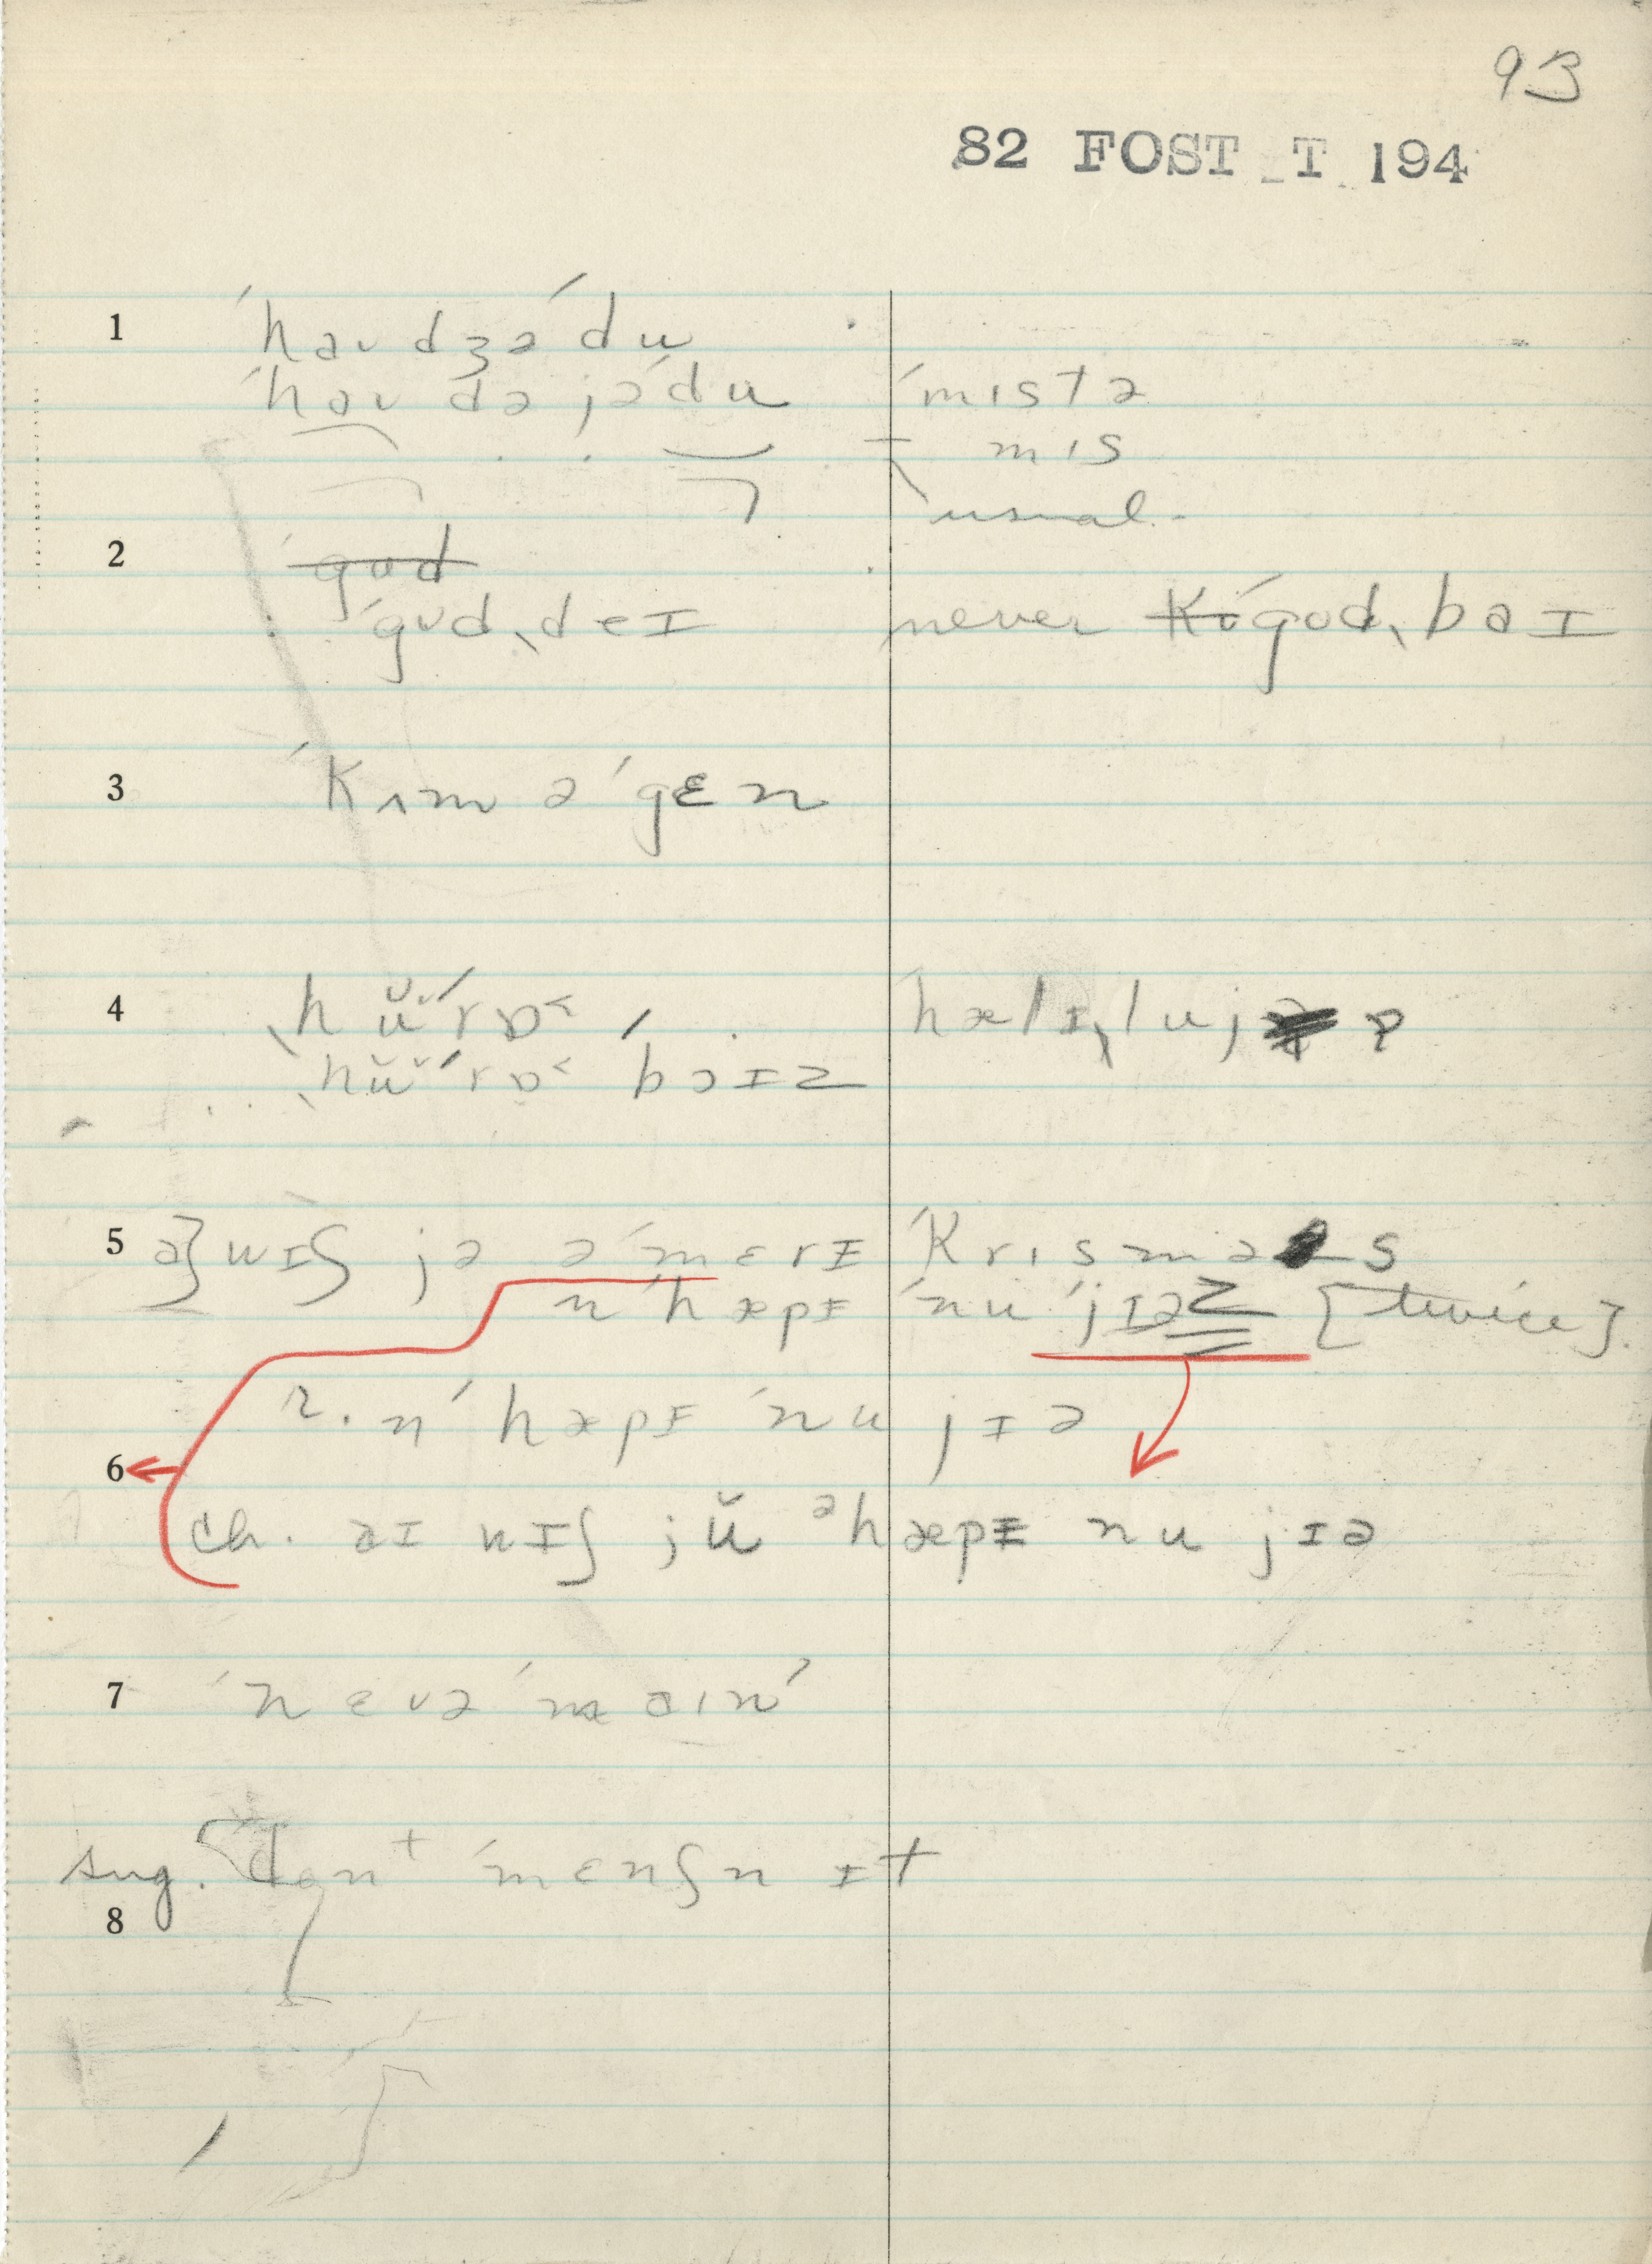 93
82 FOST T 194
1 ˈhaʊ dʒə ˈdu
ˈhaʊ də jə ˈdu ˈmɪstə
mɪs
usual.
2 ˈgʊd
ˈgʊdˌdeɪ never Kɪ ˈgʊdˌbaɪ
3 ˈKʌm əˈgɛn
4 ˌhŭˈrɒ˂ ˈhælɪˌlujə ɒ
ˌhŭˈrɒ˂ bɔɪz
5 a} wɪʃ jə əˈmɛrɪ ˈKrɪsməs
nˈhæpɪ ˈnu ˈjɪəz [twice].
r. nˈhæpɪ ˈnu jɪə
6
ch. aɪ wɪʃ jŭ əhæpɪ nu jɪə
7 ˈnɛvə ˈmaɪnˈ
sug. dont ˈmɛnʃn ɪt
8